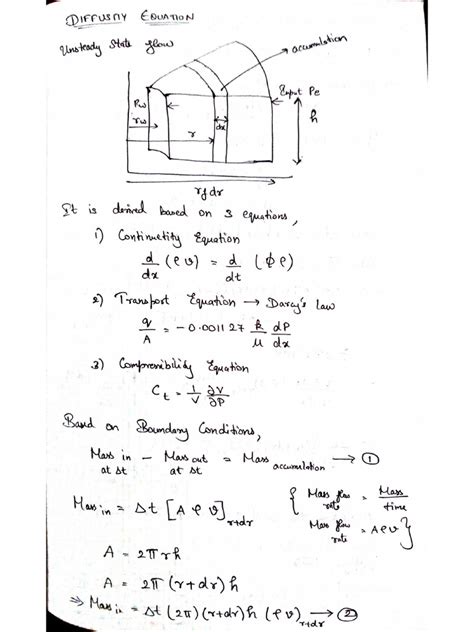 DIFFUSITY EQUATION
Unsteady State flow
accumulation
Input Pe
Pw
rw
r
dx
h
r+dr
It is derived based on 3 equations,
1) Continuetity Equation
d/dx (ρv) = d/dt (ϕρ)
2) Transport Equation → Darcy's Law
q/A = -0.001127 k/μ dP/dx
3) Compressibility Equation
Ct = 1/V ∂V/∂P
Based on Boundary Conditions,
Mass in at Δt - Mass out at Δt = Mass accumulation → ①
Mass in = Δt [A ρ v] r+dr
{ Mass flow rate = Mass/time
Mass flow rate = Aρv }
A = 2πrh
A = 2π(r+dr)h
⇒ Mass in = Δt (2π)(r+dr)h (ρv) r+dr → ②